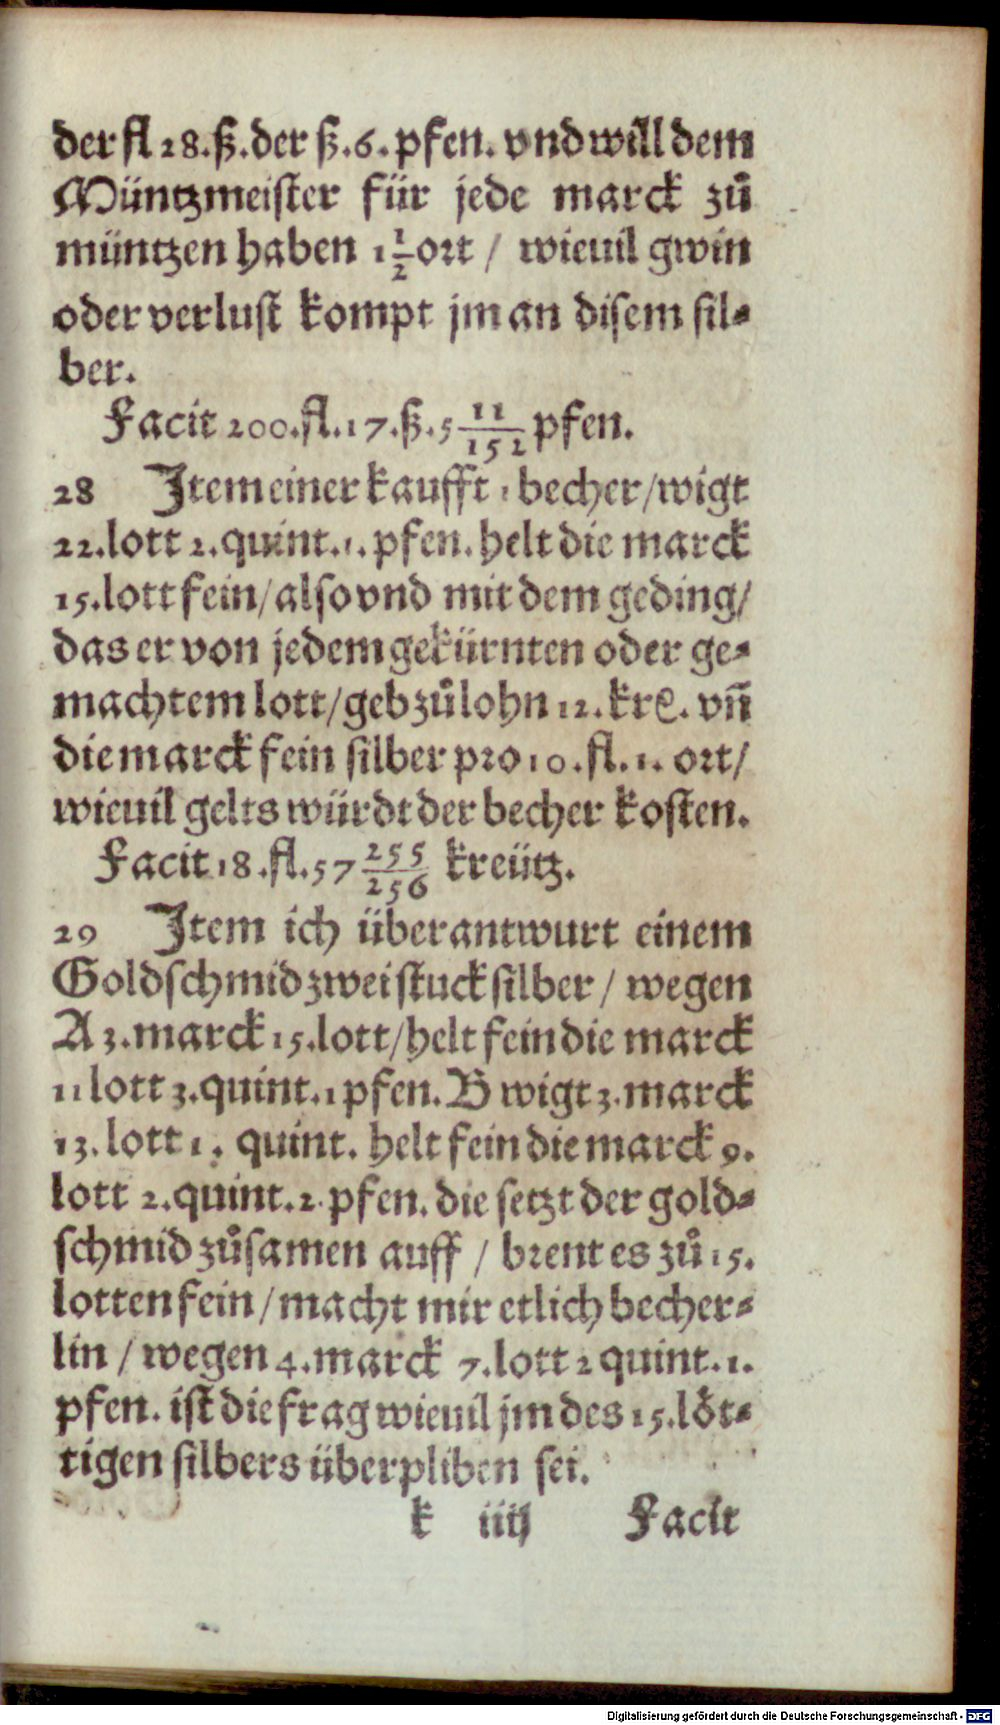 der fl 28.ß.der ß.6.pfen. vnd will dem
Müntzmeister für jede marck zů
müntzen haben 1 1/2 ort / wieuil gwin
oder verlust kompt jm an disem sil⸗
ber.
Facit 200.fl.17.ß.5 11/152 pfen.
28 Item einer kaufft 1 becher/wigt
22.lott 2.quint.1.pfen.helt die marck
15.lott fein/also vnd mit dem geding/
das er von jedem gekürnten oder ge⸗
machtem lott/geb zů lohn 12.krꝭ. vn̄
die marck fein silber pro 10.fl.1.ort/
wieuil gelts würdt der becher kosten.
Facit 18.fl.57 255/256 kreütz.
29 Item ich überantwurt einem
Goldschmid zwei stuck silber / wegen
A 3.marck 15.lott/helt fein die marck
11 lott 3.quint.1 pfen. B wigt 3.marck
13.lott 1. quint. helt fein die marck 9.
lott 2.quint.2.pfen.die setzt der gold⸗
schmid zůsamen auff / brent es zů 15.
lotten fein/macht mir etlich becher⸗
lin / wegen 4.marck 7.lott 2 quint.1.
pfen. ist die frag wieuil jm des 15.löt⸗
tigen silbers überpliben sei.
k iiij Facit
Digitalisierung gefördert durch die Deutsche Forschungsgemeinschaft - DFG